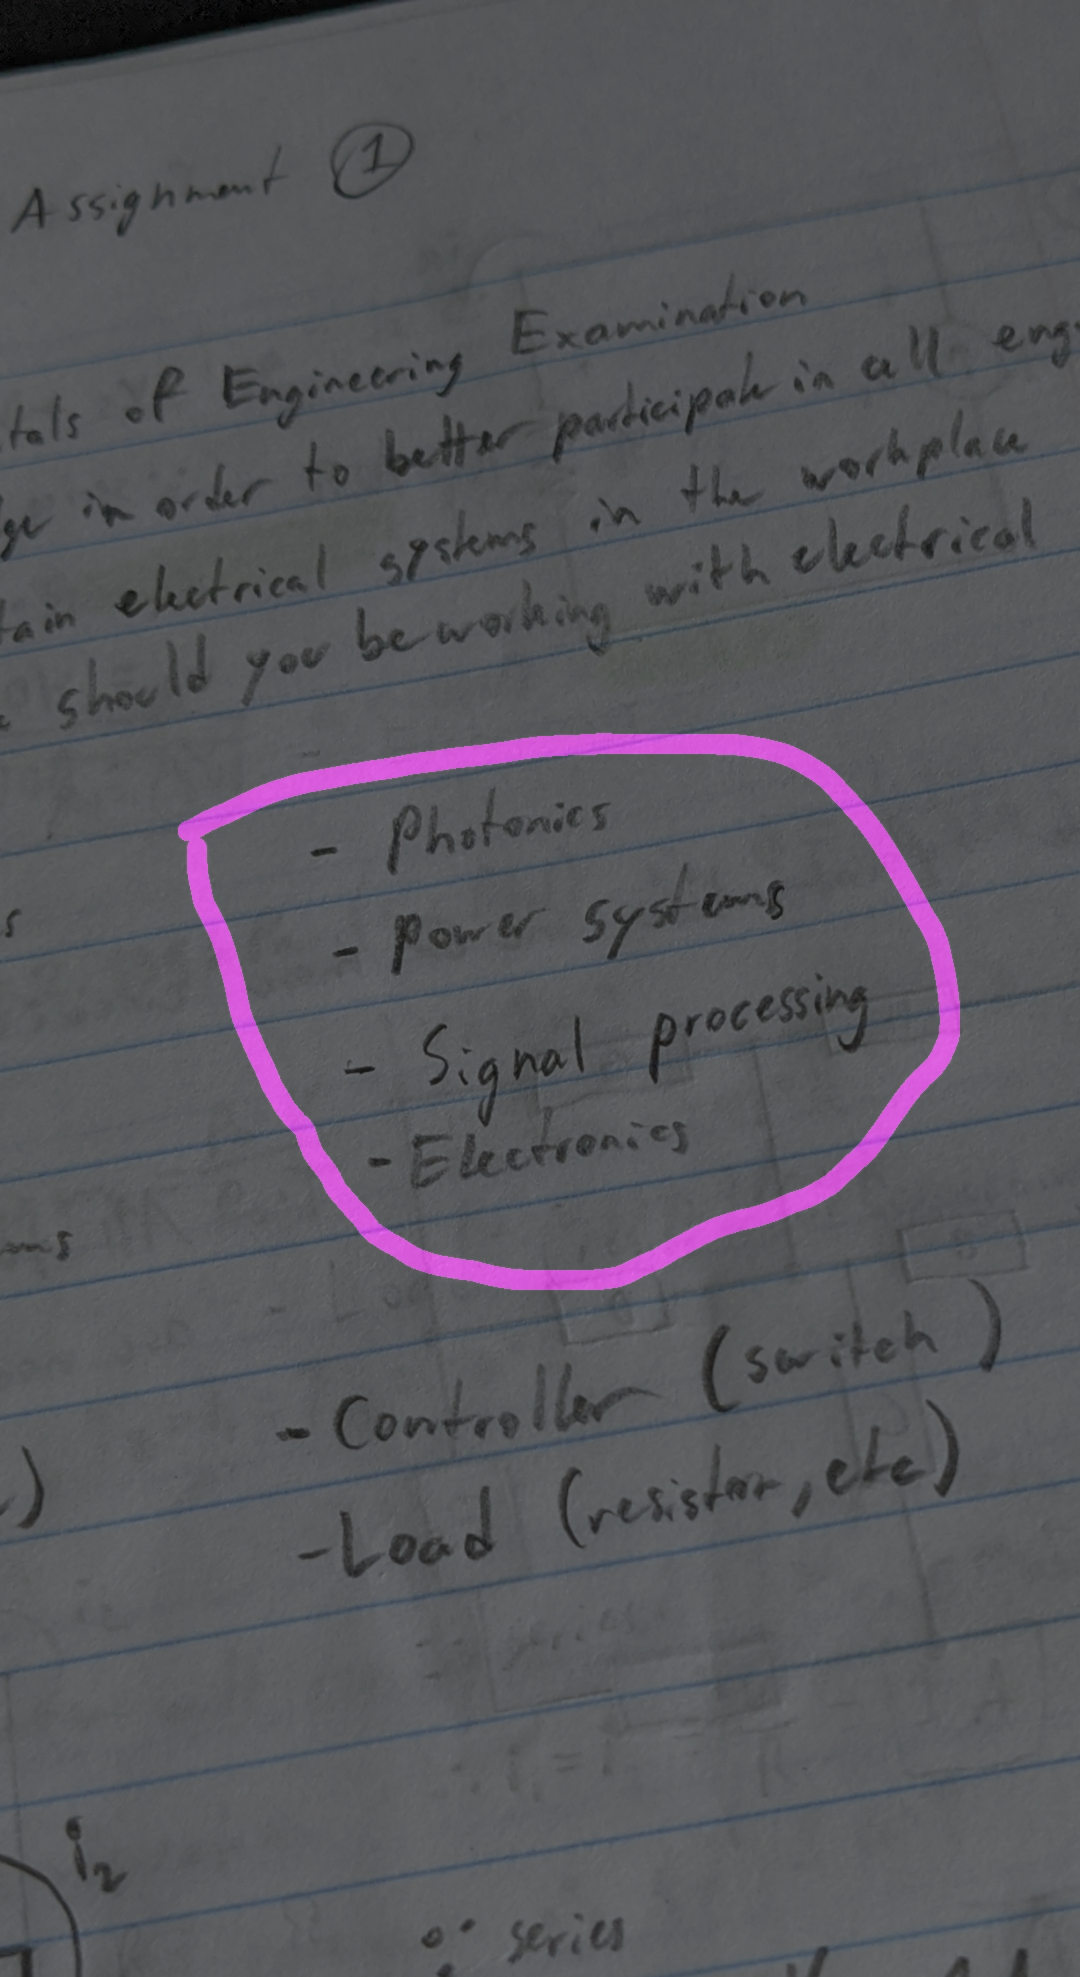 Assignment ①
tals of Engineering Examination
in order to better participate in all eng
tain electrical systems in the workplace
should you be working with electrical
- Photonics
s
- Power systems
- Signal processing
- Electronics
ms
- Controller (switch)
)
- Load (resistor, etc)
i₂
series